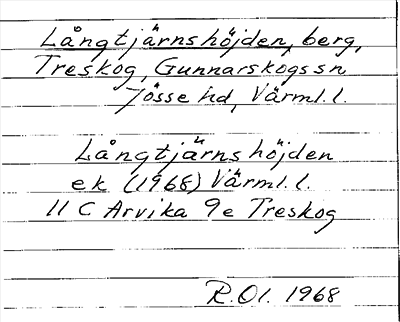 Långtjärnshöjden, berg,
Treskog, Gunnarskogs sn
Jösse hd, Värml. l.
Långtjärnshöjden
ek (1968) Värml. l.
11 C Arvika 9e Treskog
R.Ol. 1968